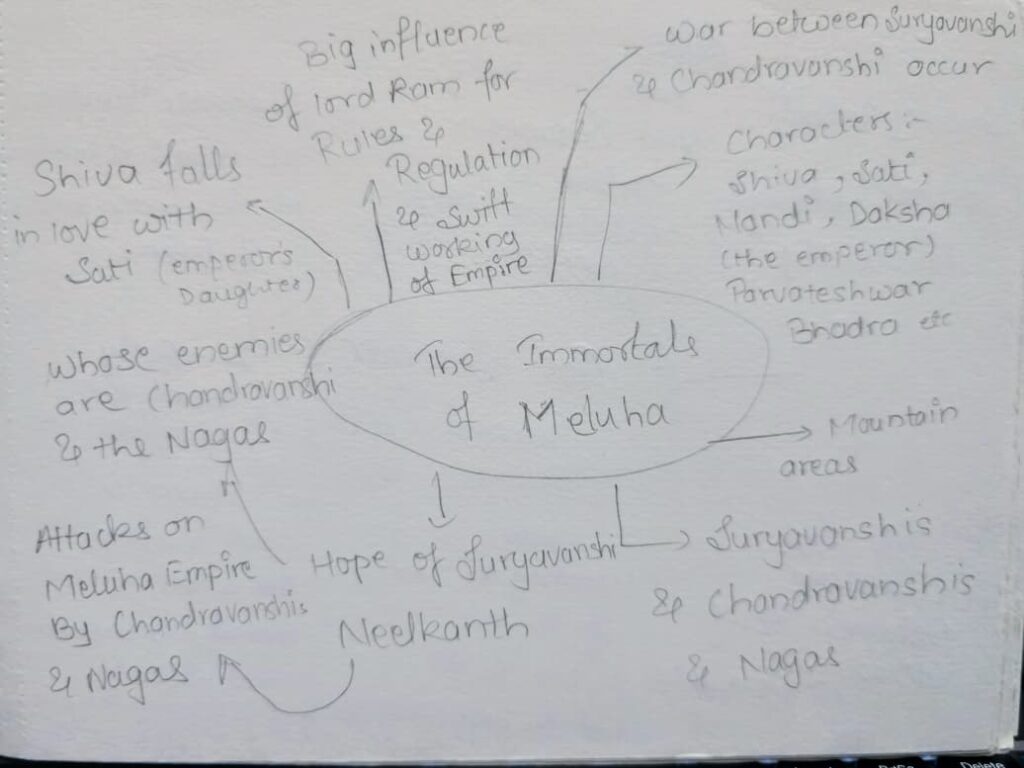 The Immortals
of Meluha
Big influence
of lord Ram for
Rules &
Regulation
& Swift
working
of Empire
war between Suryavanshi
& Chandravanshi occur
Characters :-
Shiva, Sati,
Nandi, Daksha
(the emperor)
Parvateshwar
Bhadra etc
Mountain
areas
Suryavanshis
& Chandravanshis
& Nagas
Hope of Suryavanshi
Neelkanth
Attacks on
Meluha Empire
By Chandravanshis
& Nagas
whose enemies
are Chandravanshi
& the Nagas
Shiva falls
in love with
Sati (emperor's
Daughter)
Delete